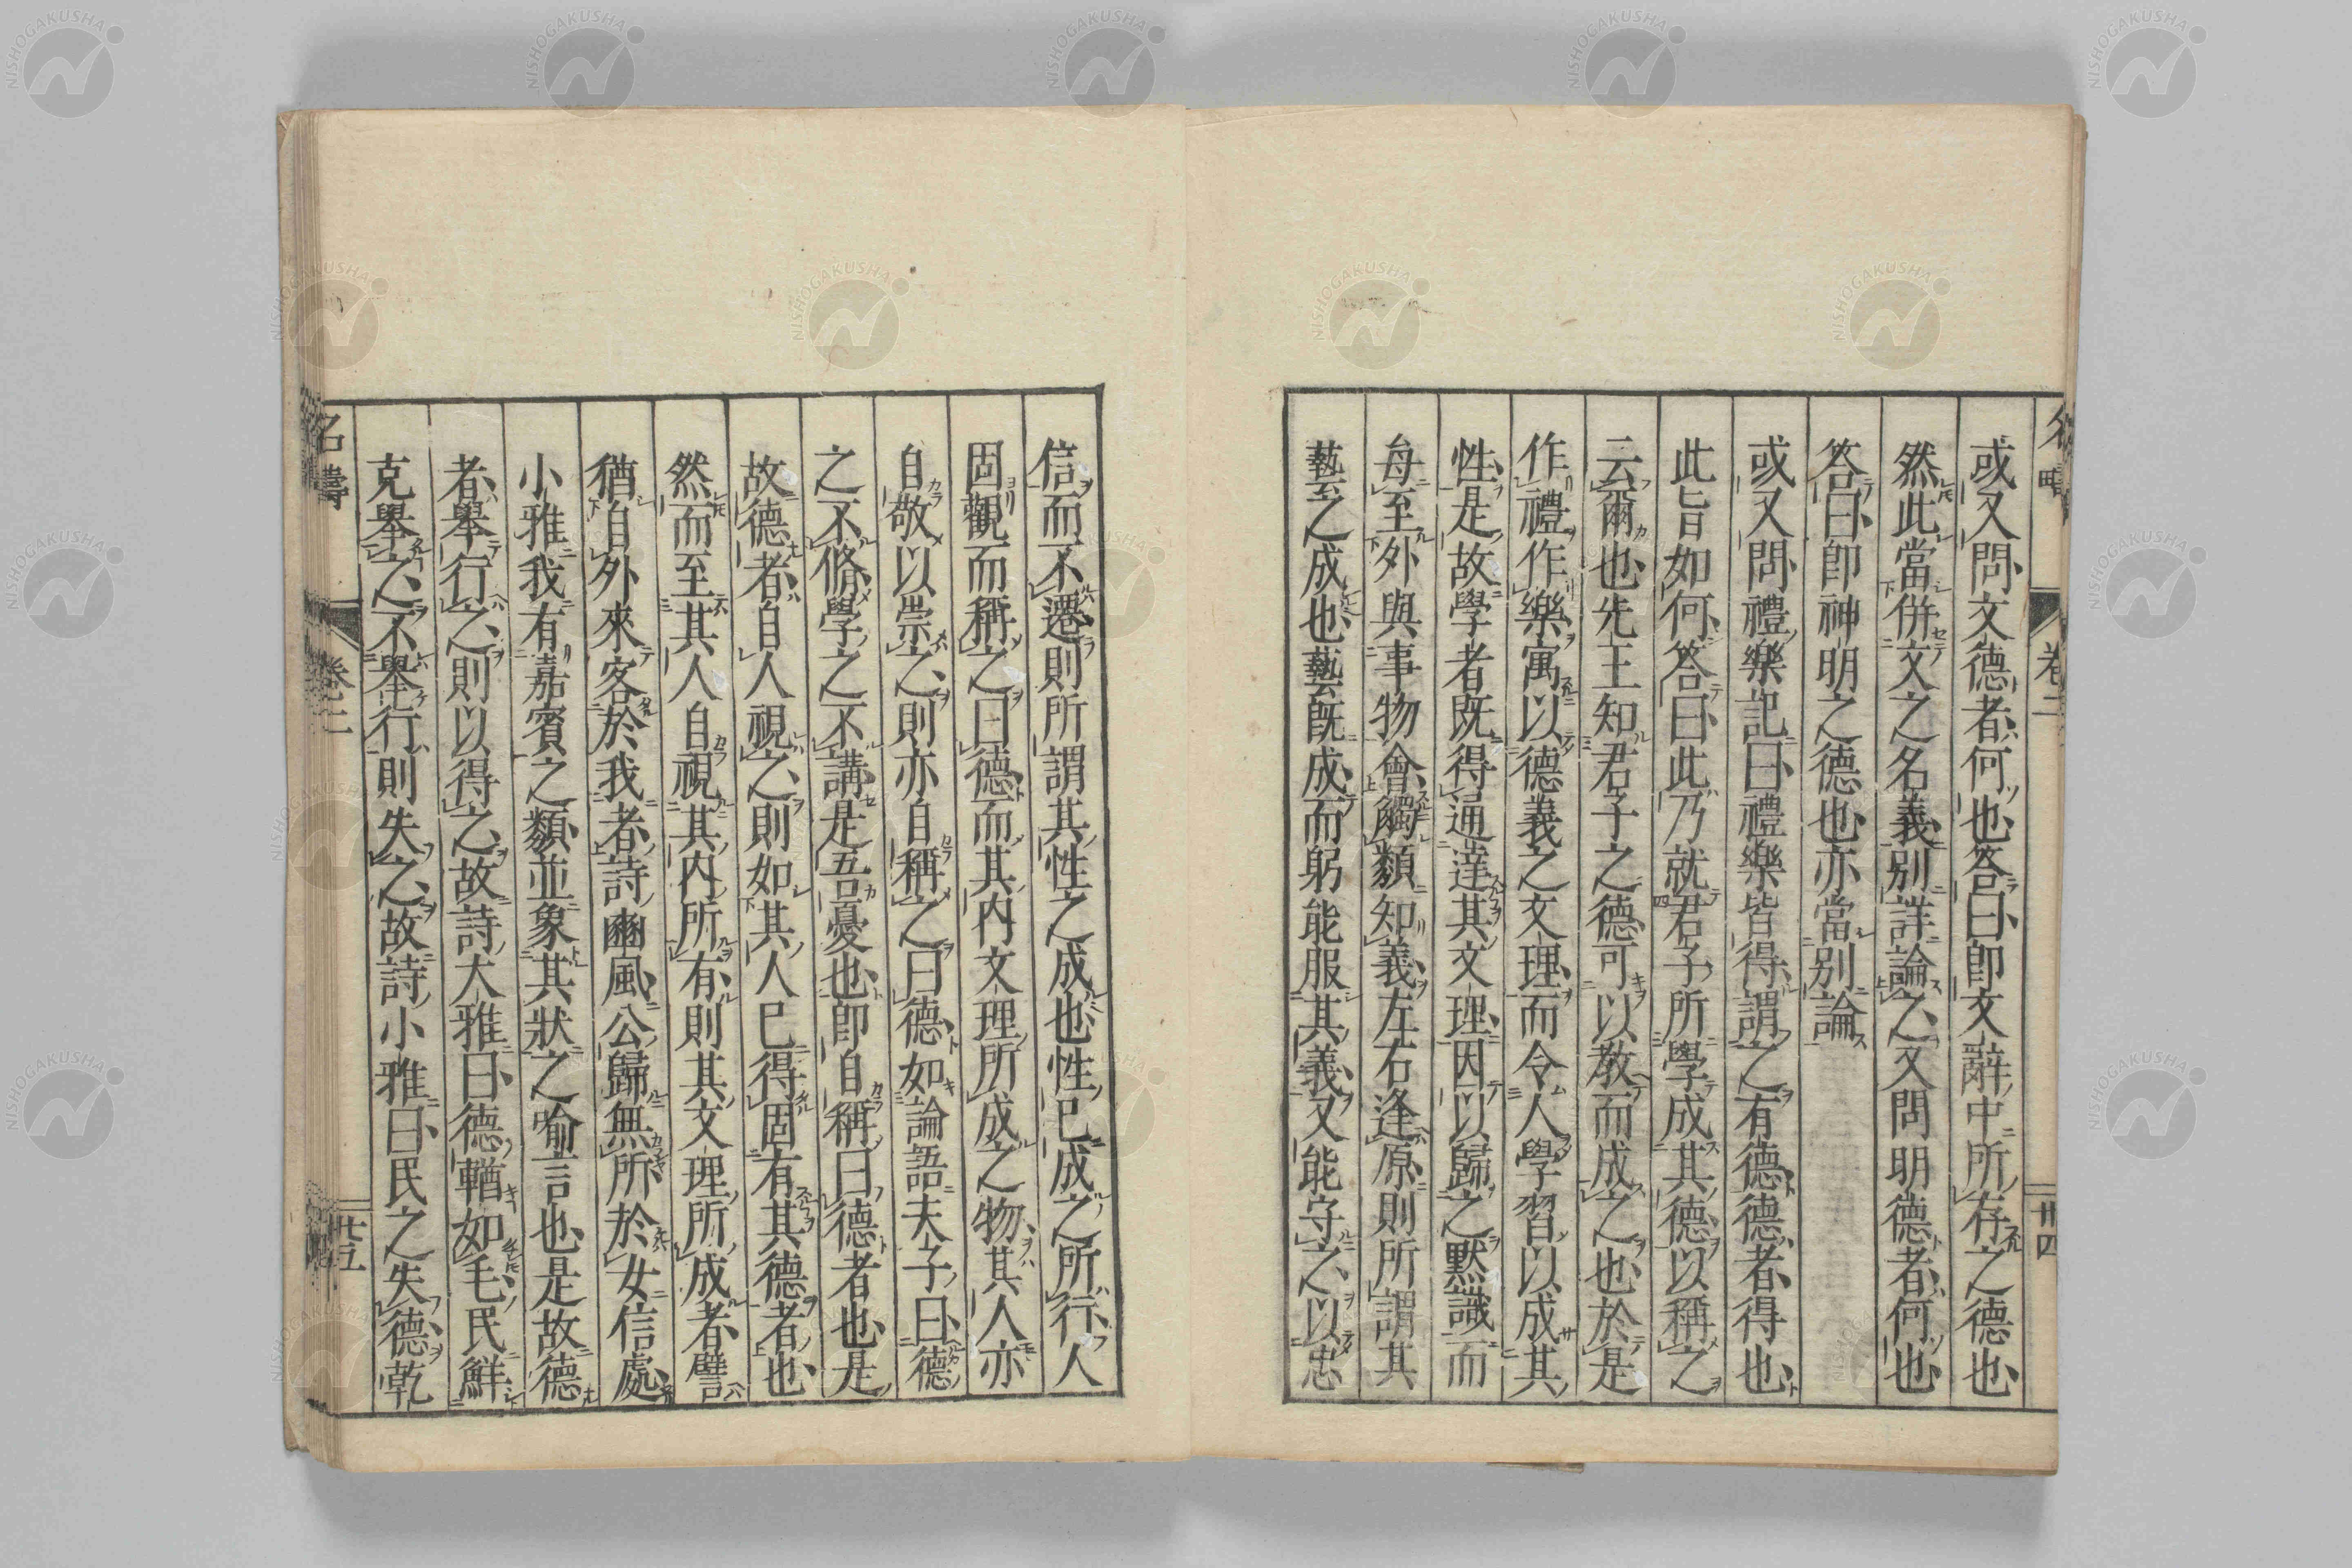 或又問文德者何也答曰卽文辭中所存之德也
然此當併文之名義別詳論之又問明德者何也
答曰卽神明之德也亦當別論
或又問禮樂記曰禮樂皆得謂之有德德者得也
此旨如何答曰此乃就君子所學成其德以稱之
云爾也先王知君子之德可以教而成之也於是
作禮作樂寓以德義之文理而令人學習以成其
性是故學者既得通達其文理因以歸之默識而
每至外與事物會觸類知義左右逢原則所謂其
藝之成也藝既成而躬能服其義又能守之以忠
卷二
廿四
信而不遷則所謂其性之成也性已成之所行人
固觀而稱之曰德而其内文理所成之物其人亦
自敬以崇之則亦自稱之曰德如論語夫子曰德
之不脩學之不講是吾憂也卽自稱曰德者也是
故德者自人視之則如其人已得固有其德者也
然而至其人自視其内所有則其文理所成者譬
猶自外來客於我者詩豳風公歸無所於女信處
小雅我有嘉賓之類並象其狀之喻言也是故德
者舉行之則以得之故詩大雅曰德輶如毛民鮮
克舉之不舉行則失之故詩小雅曰民之失德乾
名疇
卷二
廿五
NISHOGAKUSHA